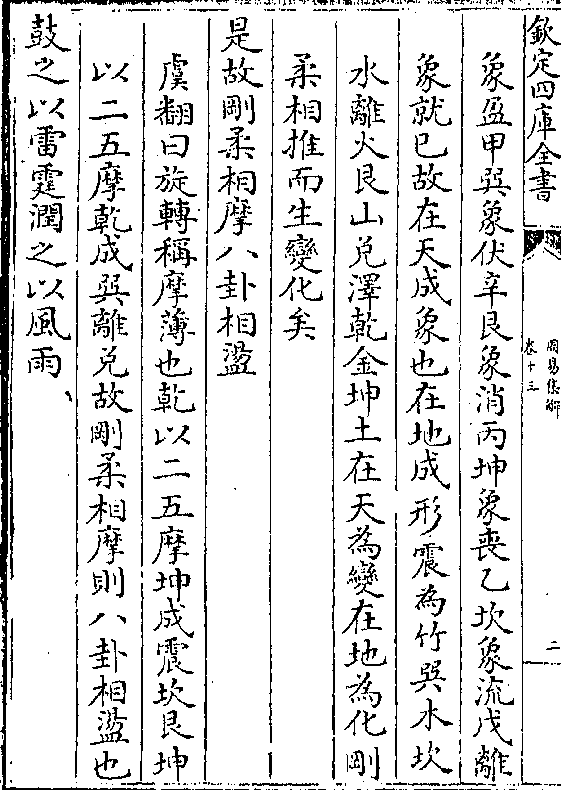 欽定四庫全書
周易集解
卷十三
二
象盈甲巽象伏辛艮象消丙坤象喪乙坎象流戊離
象就已故在天成象也在地成形震為竹巽木坎
水離火艮山兌澤乾金坤土在天為變在地為化剛
柔相推而生變化矣
是故剛柔相摩八卦相盪
虞翻曰旋轉稱摩薄也乾以二五摩坤成震坎艮坤
以二五摩乾成巽離兌故剛柔相摩則八卦相盪也
鼓之以雷霆潤之以風雨、